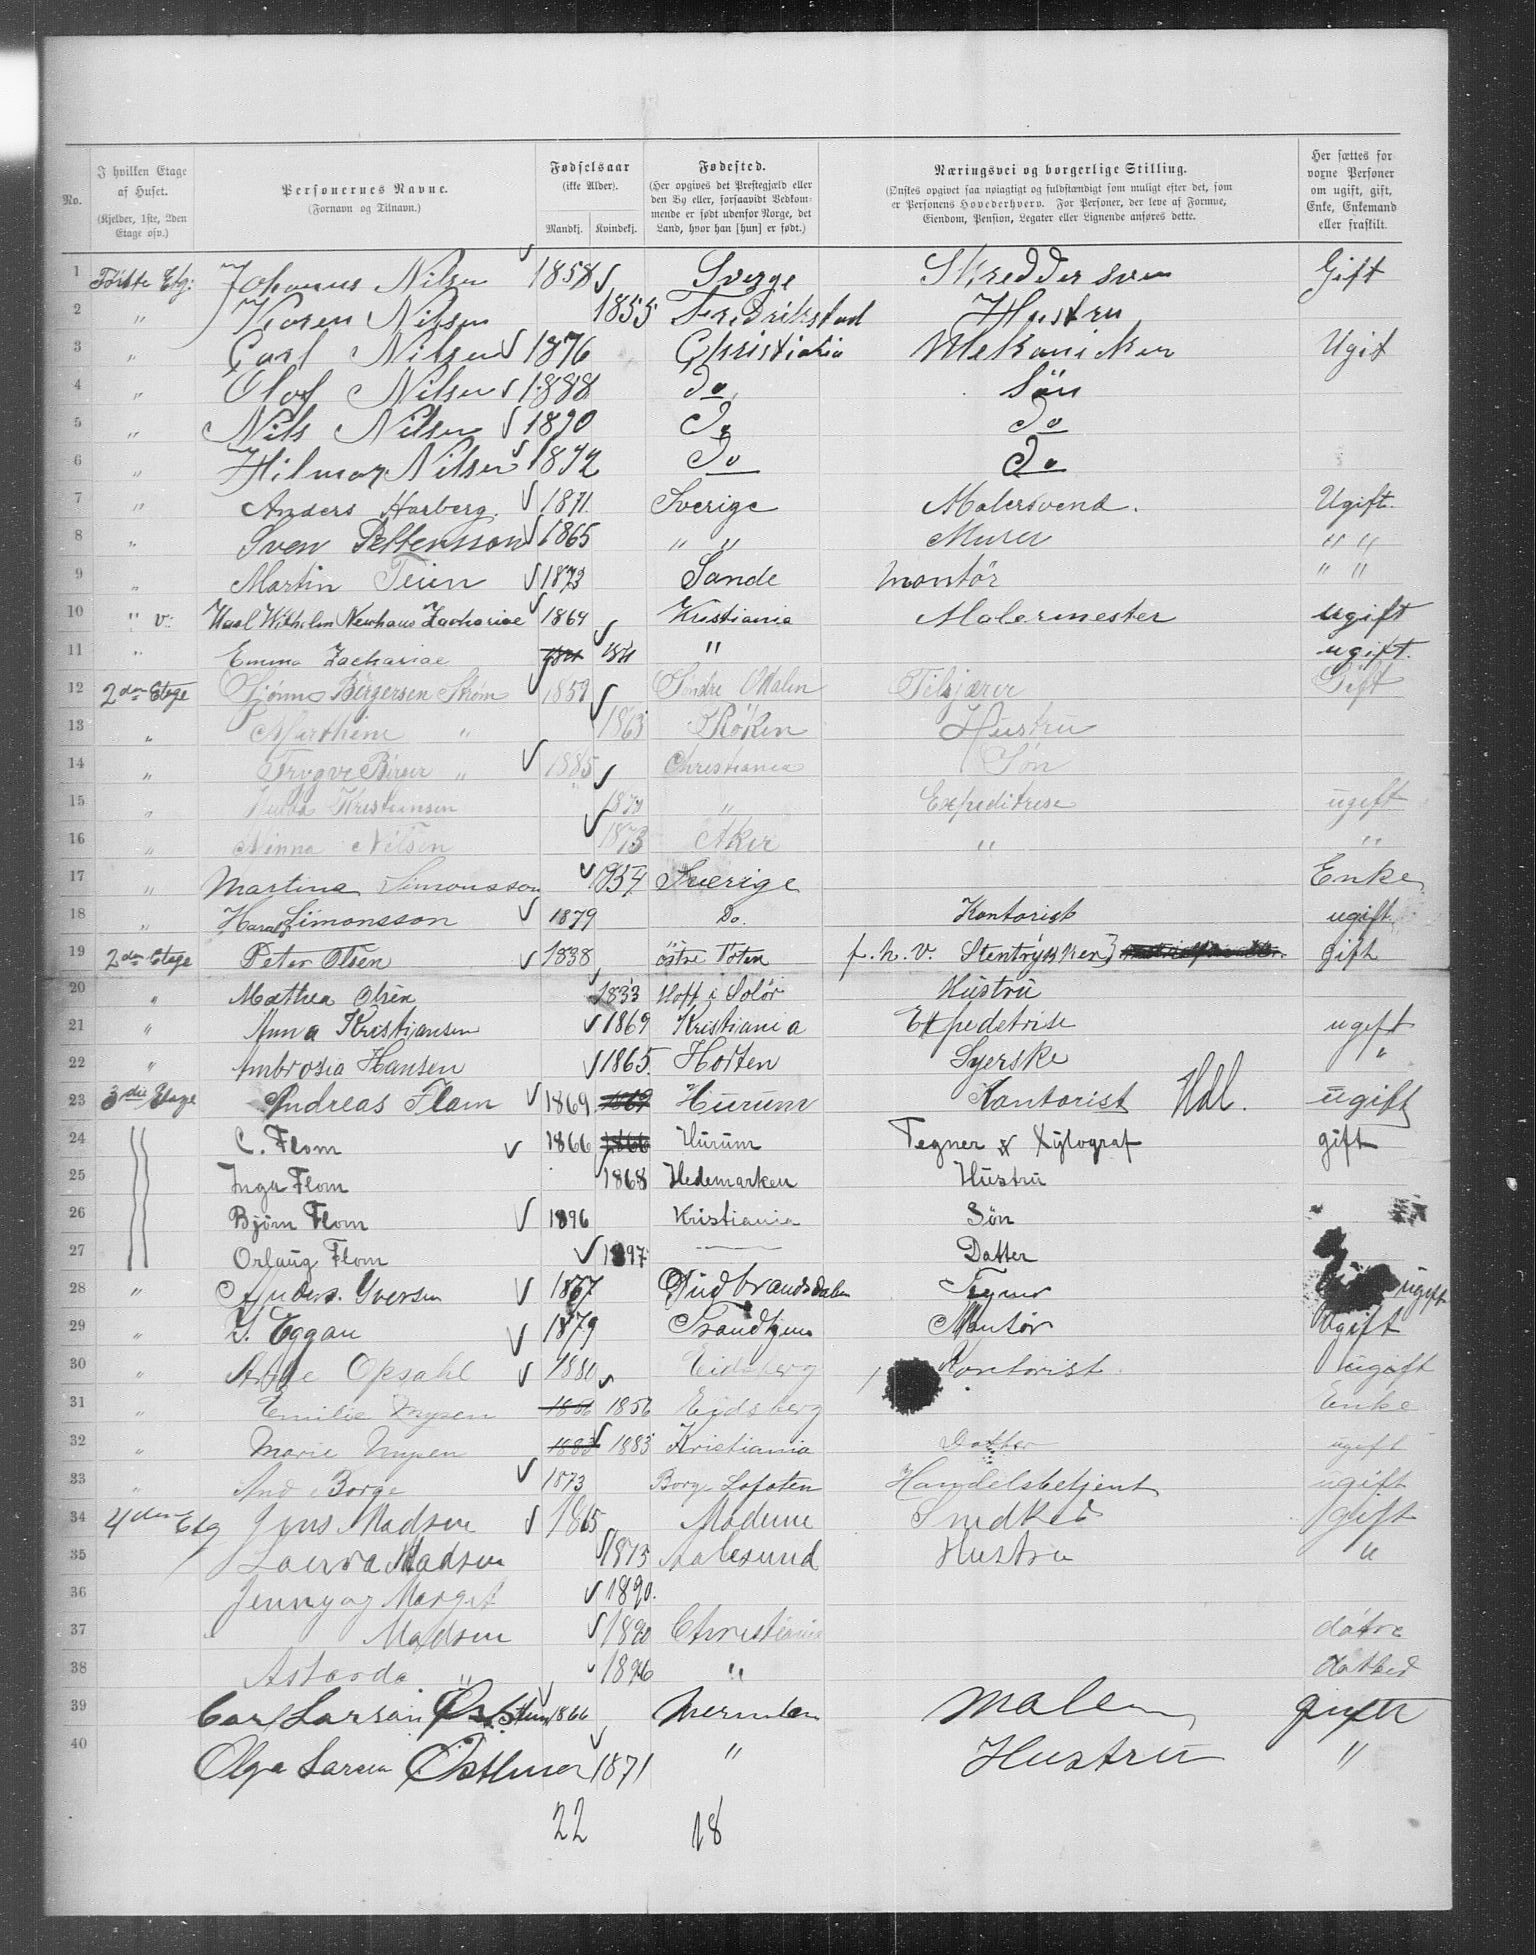 No. | I hvilken Etage af Huset. (Kjelder, 1ste, 2den Etage osv.) | Personernes Navne. (Fornavn og Tilnavn.) | Fødselsaar (ikke Alder). Mandkj. Kvindekj. | Fødested. (Her opgives det Prestegjæld eller den By eller, forsaavidt Vedkommende er født udenfor Norge, det Land, hvor han [hun] er født.) | Næringsvei og borgerlige Stilling. (Ønskes opgivet saa nøiagtigt og fuldstændigt som muligt efter det, som er Personens Hovederhverv. For Personer, der leve af Formue, Eiendom, Pension, Legater eller Lignende anføres dette. | Her sættes for voxne Personer om ugift, gift, Enke, Enkemand eller fraskilt.
1 Förste Etg: Johannes Nilsen 1858 Sverge Skreddersven Gift
2 " Karen Nilsen 1855 Fredrikstad Hustru
3 " Carl Nilsen 1876 Christiania Mekaniker Ugit
4 " Olof Nilsen 1888 Do Sön
5 " Nils Nilsen 1890 Do Do
6 " Hilmar Nilsen 1892 Do Do
7 " Anders Harberg. 1871. Sverige Malersvend. Ugift.
8 " Sven Pettersson 1865 " " Murer " "
9 " Martin Teien 1873 Sande montör " "
10 " v: Karl Wilhelm Newhaus Zachariae 1869 Kristiania Malermester ugift
11 " Emma Zachariae 1871 " ugift.
12 2den Etage Bergersen Strøm 1859 Søndre Odalen Gift
13 " Marthine " 1863 Røken Hustru
14 " Trygve " 1885 Christiania Søn
15 " Kristiansen " Expeditrise ugift
16 " Minna Nilsen 1873 Aker " "
17 " Martina Simonsson 1854 Sverige Enke
18 " Harald Simonsson 1879 Do. Kontorist ugift
19 2den Etage Peter Olsen 1838 östre Toten f. h. v. Stentrykker gift
20 " Mathea Olsen 1833 Hoff i Solör Hustru
21 " Anna Kristiansen 1869 Kristiania Expedetrise ugift
22 " Ambrosia Hansen 1865. Horten Syerske "
23 3die Etage Andreas Flom 1869 Hurum Kontorist Hdl. ugift
24 C. Flom 1866 Hurum Tegner & Xylograf gift
25 Inga Flom 1868 Hedemarken Hustru
26 Bjørn Flom 1896 Kristiania Søn
27 Orlaug Flom 1897 — Datter
28 " Anders. Iversen 1867 Gudbrandsdalen Tegner ugift
29 " Eggan 1879 Trondhjem Montør Ugift
30 " Opsahl 1880 Eidsberg Kontorist ugift
31 " Emilie Mysen 1856 1856 Eidsberg Enke
32 " Marie Mysen 1883 1883 Kristiania Datter ugift
33 " And Borge 1873 Borge Lofoten Handelsbetjent ugift
34 4den Etg Jens Madsen 1865 Modum Snedker gift
35 Madsen 1873 Aalesund Hustru "
36 Jenny og Margit 1890.
37 Madsen 1890 Christiania døtre
38 " 1896 "
39 Carl Larsen 1866 Maler gifte
40 Olga Larsen 1871 " Hustru "
22 18